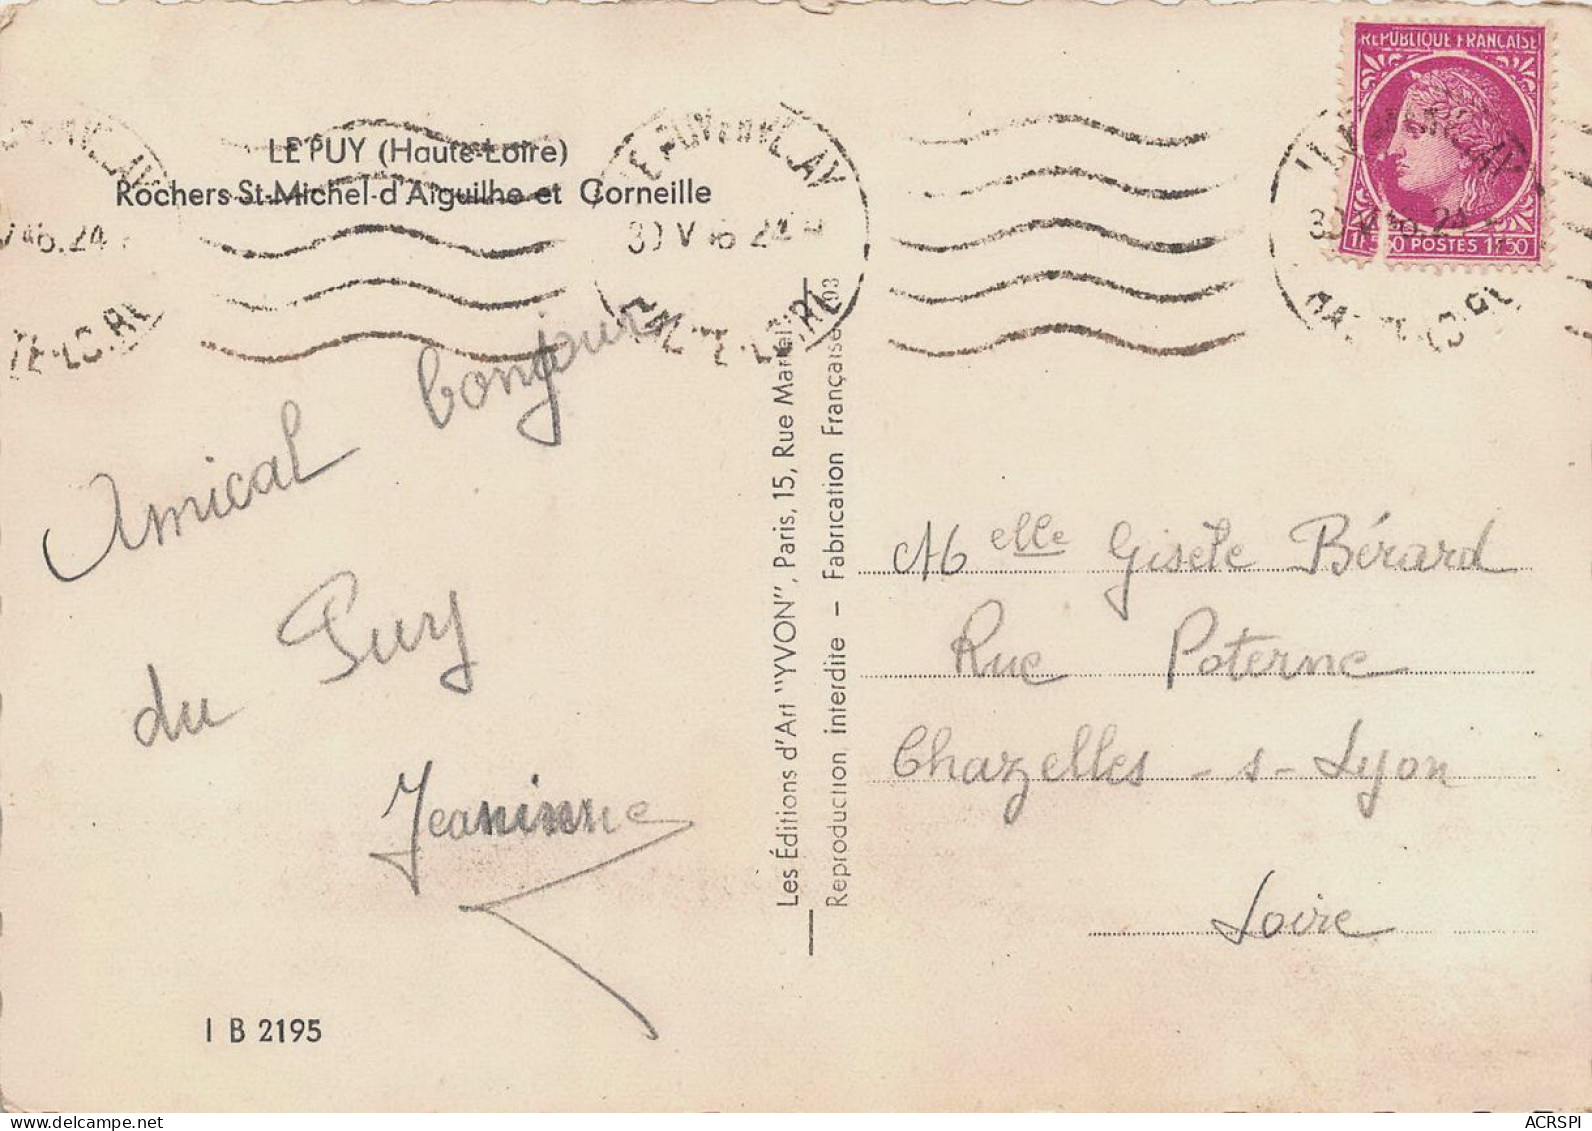 LE PUY (Haute-Loire)
Rochers St-Michel d'Aiguilhe et Corneille
Amical bonjour
du Puy
Jeaninne
I B 2195
Les Éditions d'Art "YVON", Paris, 15, Rue Martel
Reproduction interdite – Fabrication Française
RÉPUBLIQUE FRANÇAISE
POSTES 1F50
LE PUY EN VELAY
HAUTE-LOIRE
Melle Gisèle Bérard
Rue Poterne
Chazelles-s-Lyon
Loire
ACRSPI